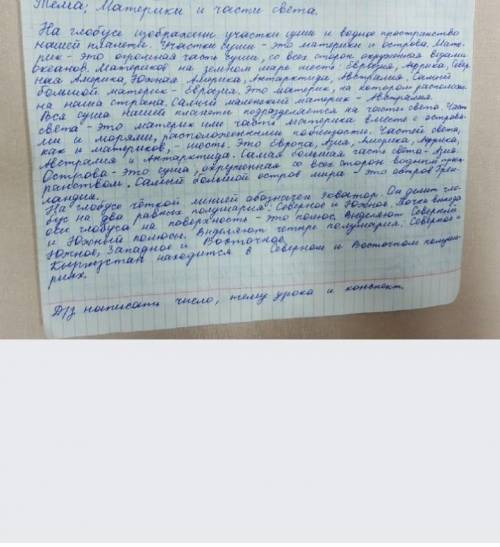 Тема: Материки и части света.
На глобусе изображены участки суши и водное пространство
нашей планеты. Участки суши - это материки и острова. Мате-
рик - это огромная часть суши, со всех сторон окружённая водами
океанов. Материков на земном шаре шесть: Евразия, Африка, Севе
ная Америка, Южная Америка, Антарктида, Австралия. Самый
большой материк - Евразия. Это материк, на котором расположе
на наша страна. Самый маленький материк - Австралия.
Вся суша нашей планеты подразделяется на части света. Част
света - это материк или части материка вместе с острова-
ми и морями, расположенными поблизости. Частей света,
как и материков, - шесть. Это Европа, Азия, Америка, Африка,
Австралия и Антарктида. Самая большая часть света - Азия.
Острова - это суша, окружённая со всех сторон водным прост
ранством. Самый большой остров мира - это остров Грен-
ландия.
На глобусе чёткой линией обозначен экватор. Он делит гло-
бус на два равных полушария: Северное и Южное. Точки выхода
оси глобуса на поверхность - это полюса. Выделяют Северный
и Южный полюсы. Выделяют четыре полушария: Северное и
Южное, Западное и Восточное.
Кыргызстан находится в Северном и Восточном полуша-
риях.
Д/з написать число, тему урока и конспект.